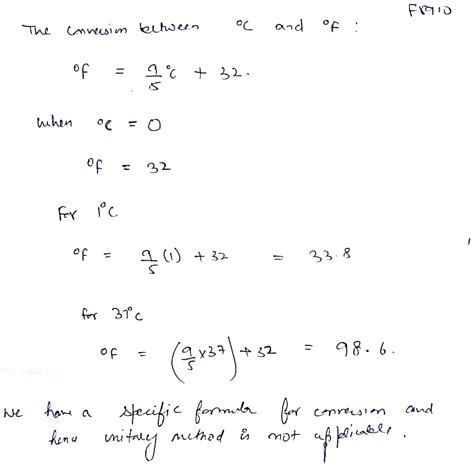 FRq10
The conversion between °C and °F :
°F = 9/5 °C + 32.
when °C = 0
°F = 32
For 1°C
°F = 9/5 (1) + 32 = 33.8
for 37°C
°F = (9/5 x 37) + 32 = 98.6.
We have a specific formula for conversion and
hence unitary method is not applicable.